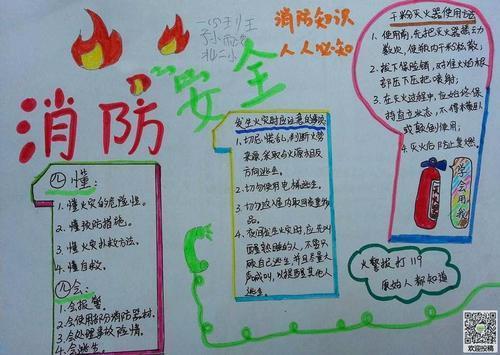 消防知识
人人必知
消防
安全
四懂:
1. 懂火灾的危险性。
2. 懂预防措施。
3. 懂火灾扑救方法。
4. 懂自救。
四会:
1. 会报警。
2. 会使用部分消防器材。
3. 会处理事故险情。
4. 会逃生。
发生火灾时应注意的事项
1. 切忌慌乱,判断火势
来源,采取与火源相反
方向逃生。
2. 切勿使用电梯逃生。
3. 切勿返回屋内取回贵重物
品。
4. 夜间发生火灾时,应先叫
醒熟睡的人,不要只
顾自己逃生,并且尽量大
声喊叫,以提醒其他人
逃生。
干粉灭火器使用方法
1. 使用前,先把灭火器摇动
数次,使瓶内干粉松散;
2. 拔下保险销,对准火焰根
部压下压把喷射;
3. 在灭火过程中,应始终保
持直立状态,不得横卧
或颠倒使用;
4. 灭火后防止复燃。
学会用我
火警报打119
原始人都知道
欢迎投稿